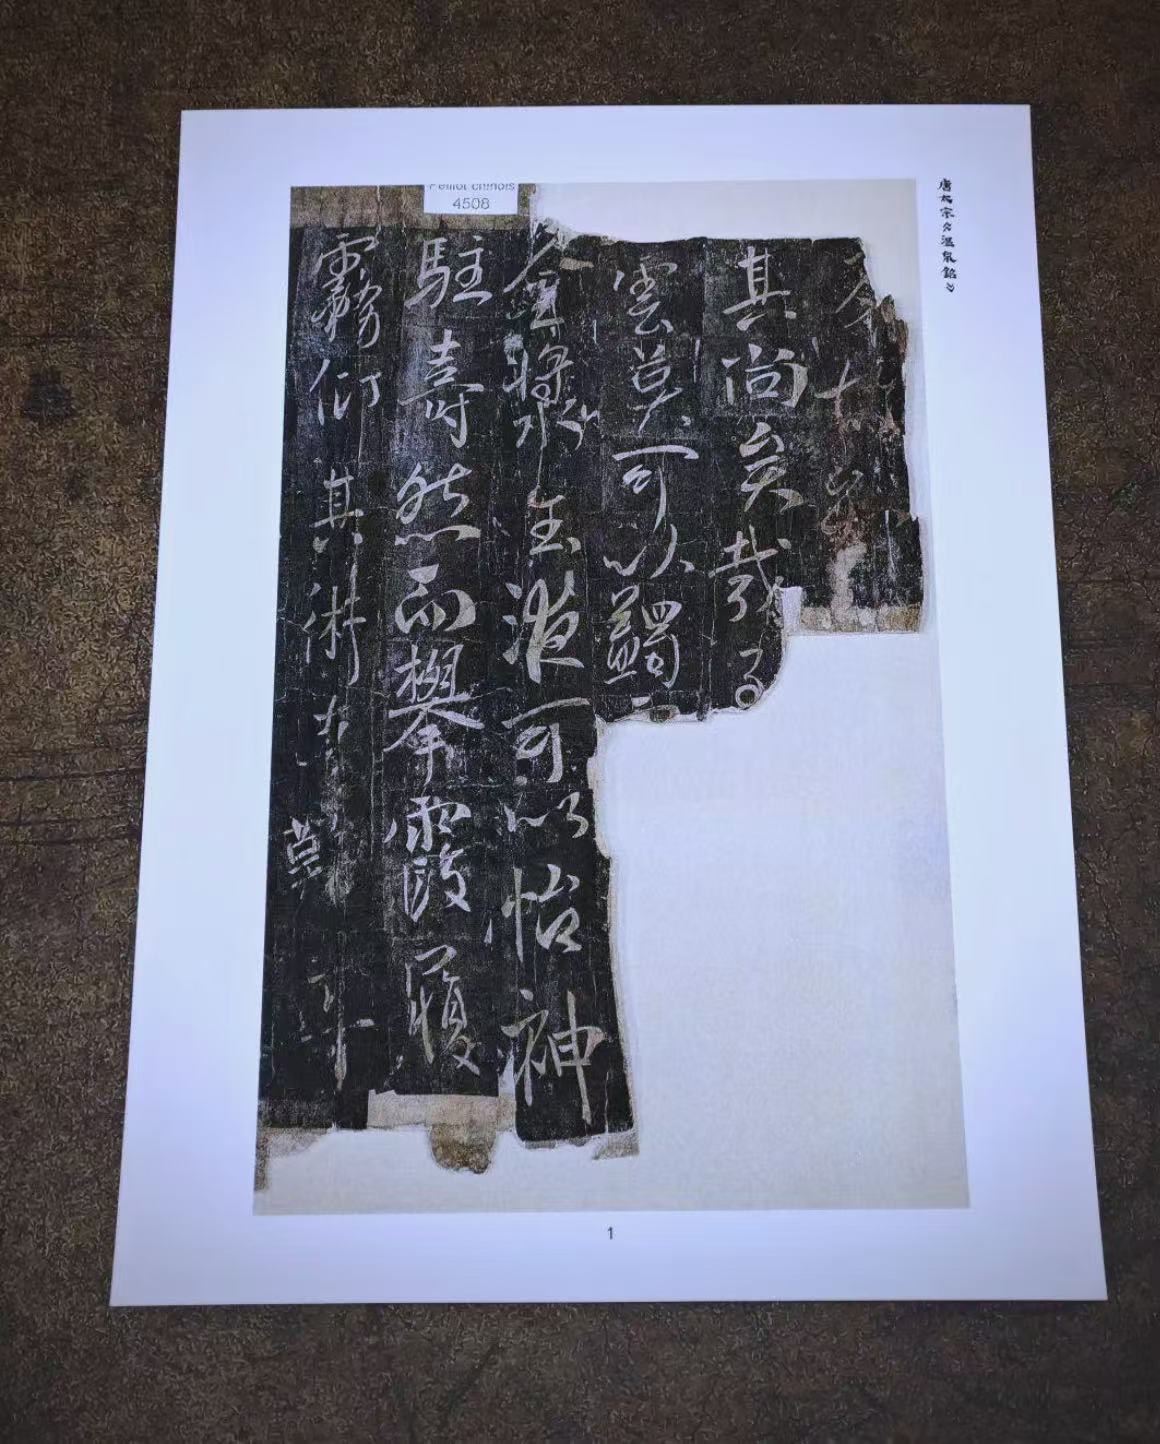 唐太宗《溫泉銘》
Pelliot chinois
4508
其尚矣哉
雲莫可以蠲
金漿玉液可以怡神
駐壽然而攀霞履
霧其術莫
1